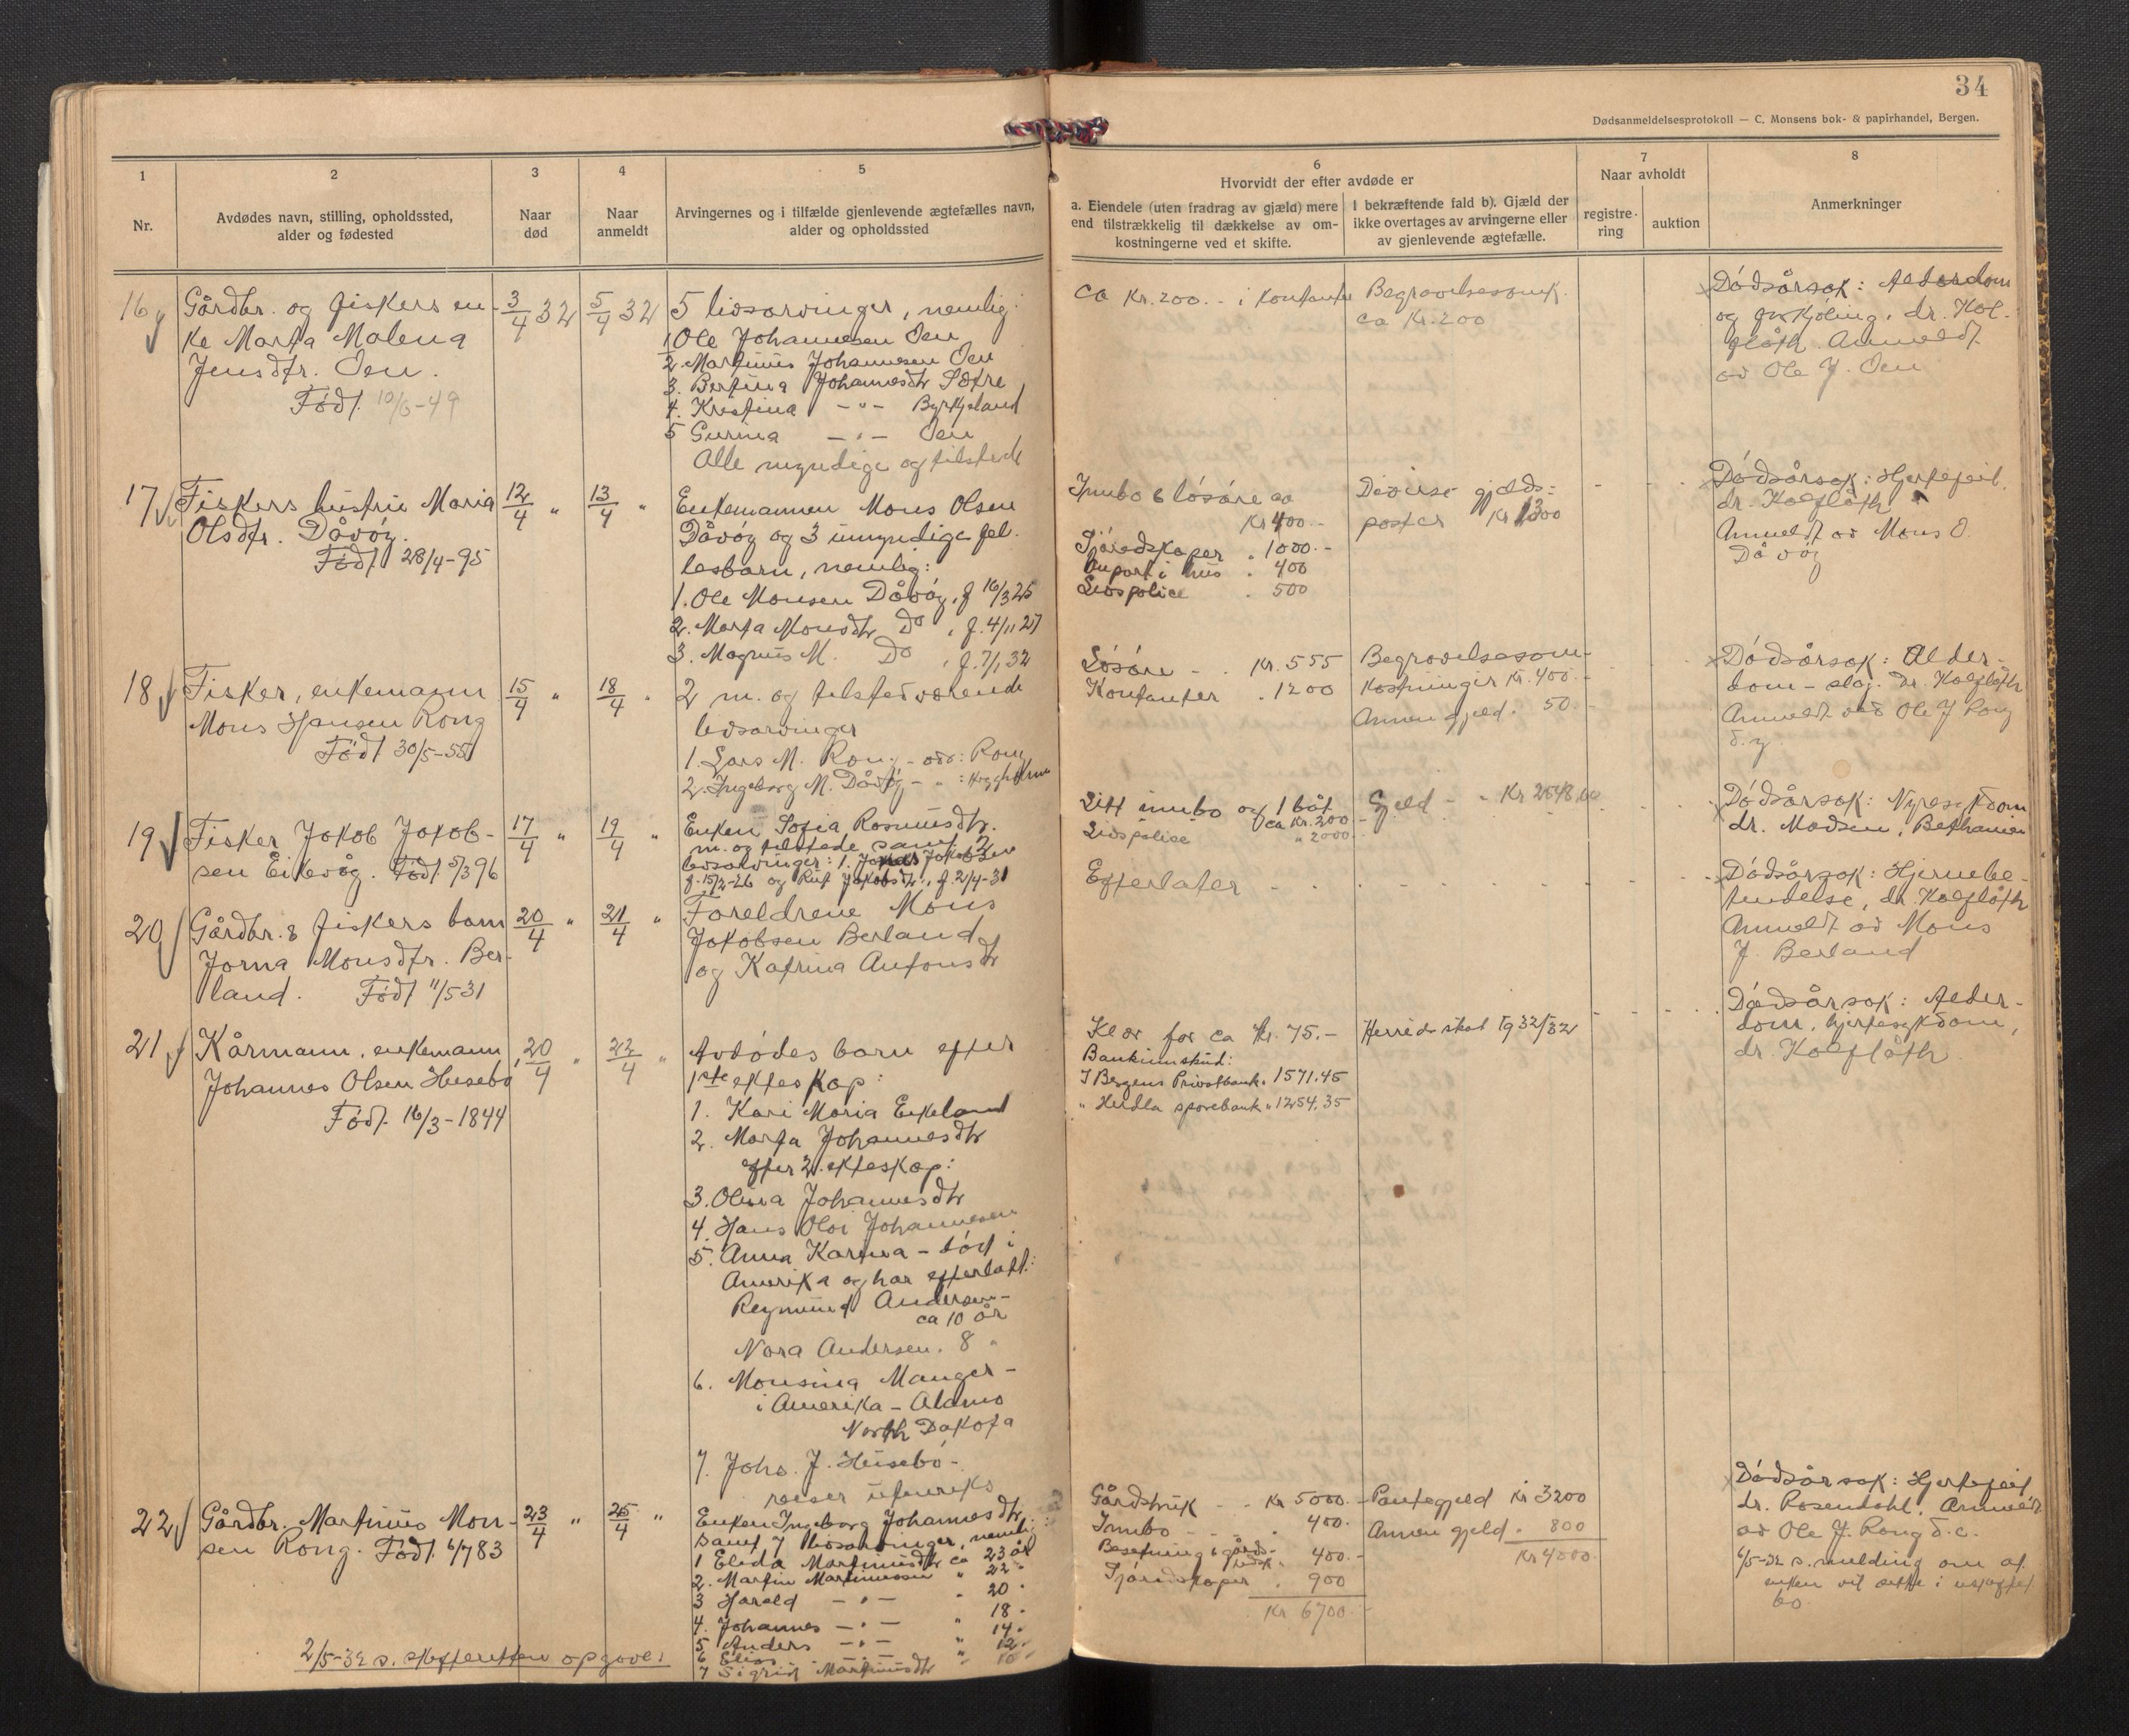 34
Dødsanmeldelsesprotokoll — C. Monsens bok- & papirhandel, Bergen.
1
Nr.
2
Avdødes navn, stilling, opholdssted,
alder og fødested
3
Naar
død
4
Naar
anmeldt
5
Arvingernes og i tilfælde gjenlevende ægtefælles navn,
alder og opholdssted
6
Hvorvidt der efter avdøde er
a. Eiendele (uten fradrag av gjæld) mere
end tilstrækkelig til dækkelse av om-
kostningerne ved et skifte.
I bekræftende fald b). Gjæld der
ikke overtages av arvingerne eller
av gjenlevende ægtefælle.
7
Naar avholdt
registre-
ring
auktion
8
Anmerkninger
16
Gårdbr. og fiskers en-
ke Marta Malena
Jensdtr. Oen.
Født 10/6-49
3/4 32
5/4 32
5 livsarvinger, nemlig:
1 Ole Johannesen Oen
2. Martinus Johannesen Oen
3. Bertina Johannesdtr Sætre
4. Kristina -"- Byrkjeland
5 Gurina -"- Oen
Alle myndige og tilstede
ca Kr. 200.- i kontanter
Begravelsesomk.
ca Kr. 200
Dødsårsak: Alderdom
og forkjøling. dr. Kol-
fløth. Anmeldt
av Ole J. Oen
17
Fiskers hustru Maria
Olsdtr. Dåvøy.
Født 28/4-95
12/4 "
13/4 "
Enkemannen Mons Olsen
Dåvøy og 3 umyndige fel-
lesbarn, nemlig:
1. Ole Monsen Dåvøy, f 16/3 25
2. Marta Monsdtr Do , f. 4/11 27
3. Magnus M. Do , f. 7/1 32
Innbo & løsøre ca
Kr 400.-
Sjøredskaper . 1000.-
Anpart i hus . 400
Livspolice . 500
Diverse gjelds-
poster Kr 1300
Dødsårsak: Hjertefeil,
dr. Kolfløth.
Anmeldt av Mons O.
Dåvøy
18
Fisker, enkemann
Mons Hansen Rong
Født 30/5-55
15/4 "
18/4 "
2 m. og tilstedværende
livsarvinger
1. Lars M. Rong - adr: Rong
2. Ingeborg M. Dåvøy - " :
Løsøre - . Kr. 555
Kontanter . 1200
Begravelsesom-
kostninger Kr. 400.-
Annen gjeld. 50.-
Dødsårsak: Alder-
dom - slag. Dr. Kolfløth
Anmeldt ved Ole J Rong
d.y.
19
Fisker Jakob Jakob-
sen Eikevåg. Født 5/3 96
17/4 "
19/4 "
Enken Sofia Rasmusdtr.
m. og tilstede samt 2
livsarvinger: 1. Jakob Jakobsen
f. 15/2-26 og Rut Jakobsdtr., f. 2/4-31
Litt innbo og 1 båt
ca Kr. 200.-
Livspolice " 2000.-
Gjeld - - Kr 2548.00
Dødsårsak: Nyresykdom
dr. Madsen, Bethanien
20
Gårdbr. & fiskers barn
Jorna Monsdtr. Ber-
land. Født 11/5 31
20/4 "
21/4 "
Foreldrene Mons
Jakobsen Berland
og Katrina Antonsdtr
Efterlater - - - -
Dødsårsak: Hjernebe-
tendelse, dr. Kolfløth
Anmeldt av Mons
J. Berland
21
Kårmann, enkemann
Johannes Olsen Husebø
Født 16/3-1844
20/4 "
22/4 "
Avdødes barn efter
1ste ekteskap:
1. Kari Maria Eikeland
2. Marta Johannesdtr
efter 2. ekteskap:
3. Olina Johannesdtr
4. Hans Olai Johannesen
5. Anna Karina - død i
Amerika og har efterlatt:
Reymund Andersen-
ca 10 år
Nora Andersen. 8 "
6. Monsina Manger-
i Amerika - Alamo
North Dakota
7. Johs. J. Husebø-
reiser utenriks
Klær for ca Kr. 75.-
Bankinnskud:
I Bergens Privatbank. 1571.45
" Herdla sparebank " 1254.35
Herredsskat
Dødsårsak: Alder-
dom, hjertesykdom,
dr. Kolfløth.
22
Gårdbr. Martinus Mon-
sen Rong. Født 6/7 83
23/4 "
25/4 "
Enken Ingeborg Johannesdtr,
samt 7 livsarvinger, nemlig:
1 Elida Martinusdtr ca 23 år
2. Martin Martinussen " 22 "
3 Harald -"- " 20 "
4. Johannes -"- " 18 "
5 Anders -"- " 14 "
6 Elias -"- " 12 "
7 Sigrid Martinusdtr " 10 "
Gårdsbruk - - Kr 5000.-
Innbo - - - . 400.-
Besetning & gårds-
redsk. . 400.-
Sjøredskaper . 900
Kr 6700.-
Pantegjeld kr 3200
Annen gjeld . 800
Kr 4000.-
Dødsårsak: Hjertefeil,
dr. Rosendahl. Anmeldt
av Ole J. Rong d.e.
6/5-32 s. melding om at
enken vil sitte i uskiftet
bo
2/5-32 s. skifteretten opgave.